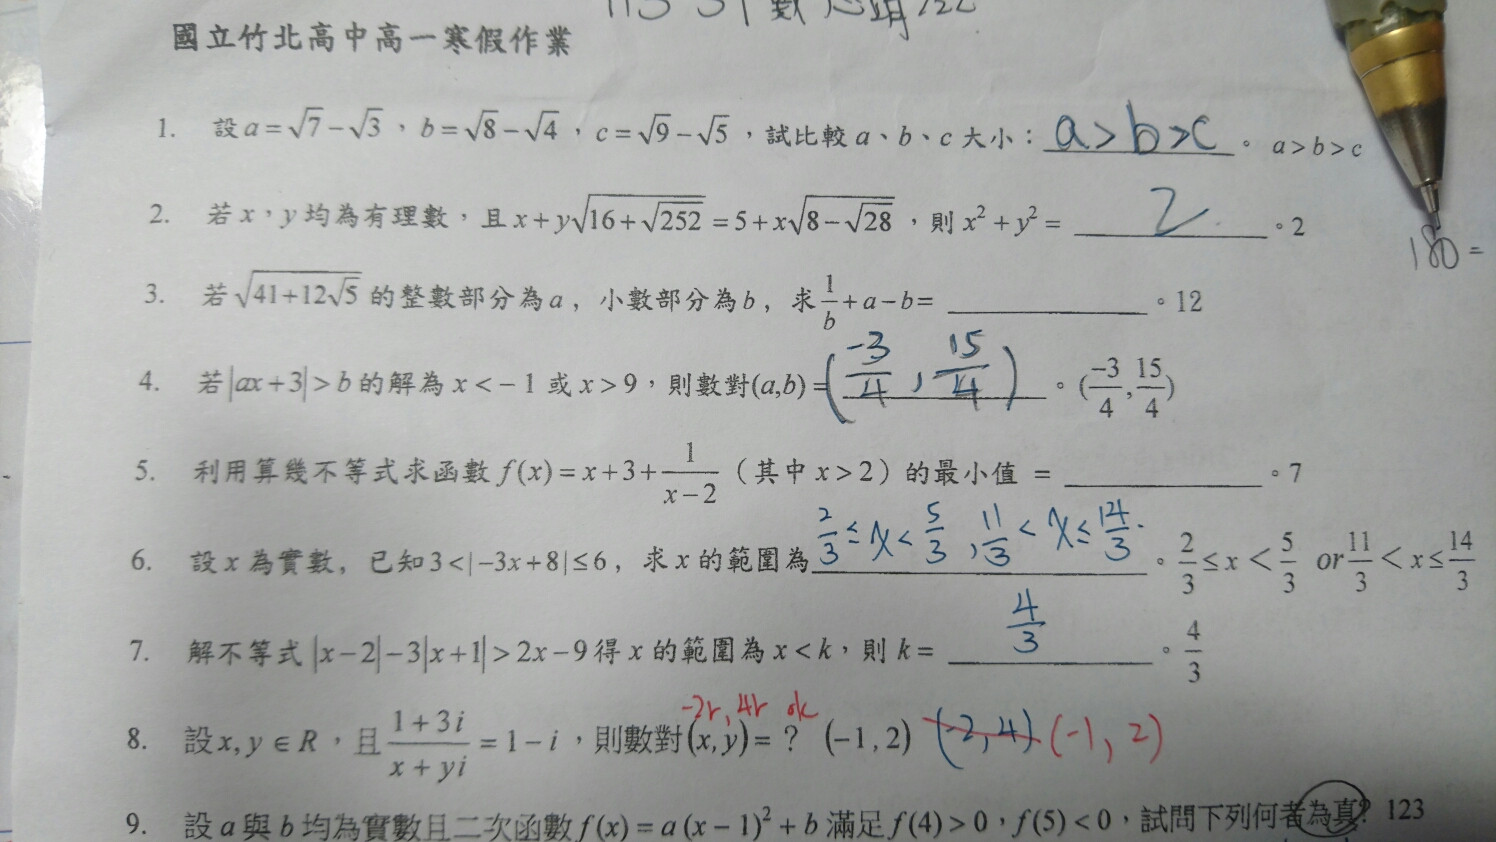 國立竹北高中高一寒假作業
1. 設 a = √7 − √3 , b = √8 − √4 , c = √9 − √5 , 試比較 a、b、c 大小： a > b > c 。 a > b > c
2. 若 x，y 均為有理數，且 x + y√(16 + √252) = 5 + x√(8 − √28) , 則 x² + y² = 2 。2
180 =
3. 若 √(41 + 12√5) 的整數部分為 a , 小數部分為 b , 求 1/b + a − b = ______ 。12
4. 若 |ax + 3| > b 的解為 x < − 1 或 x > 9，則數對 (a,b) = (-3/4 , 15/4) 。 (-3/4 , 15/4)
5. 利用算幾不等式求函數 f(x) = x + 3 + 1/(x − 2)（其中 x > 2）的最小值 = ______ 。7
6. 設 x 為實數, 已知 3 < | −3x + 8 | ≤ 6 , 求 x 的範圍為 2/3 ≤ x < 5/3 , 11/3 < x ≤ 14/3 。 2/3 ≤ x < 5/3 or 11/3 < x ≤ 14/3
7. 解不等式 |x − 2| − 3|x + 1| > 2x − 9 得 x 的範圍為 x < k，則 k = 4/3 。 4/3
-2r, 4r ok
8. 設 x, y ∈ R，且 (1 + 3i)/(x + yi) = 1 − i，則數對 (x, y) = ？ (−1, 2) (-2, 4) (-1, 2)
9. 設 a 與 b 均為實數且二次函數 f(x) = a (x − 1)² + b 滿足 f(4) > 0，f(5) < 0，試問下列何者為真? 123